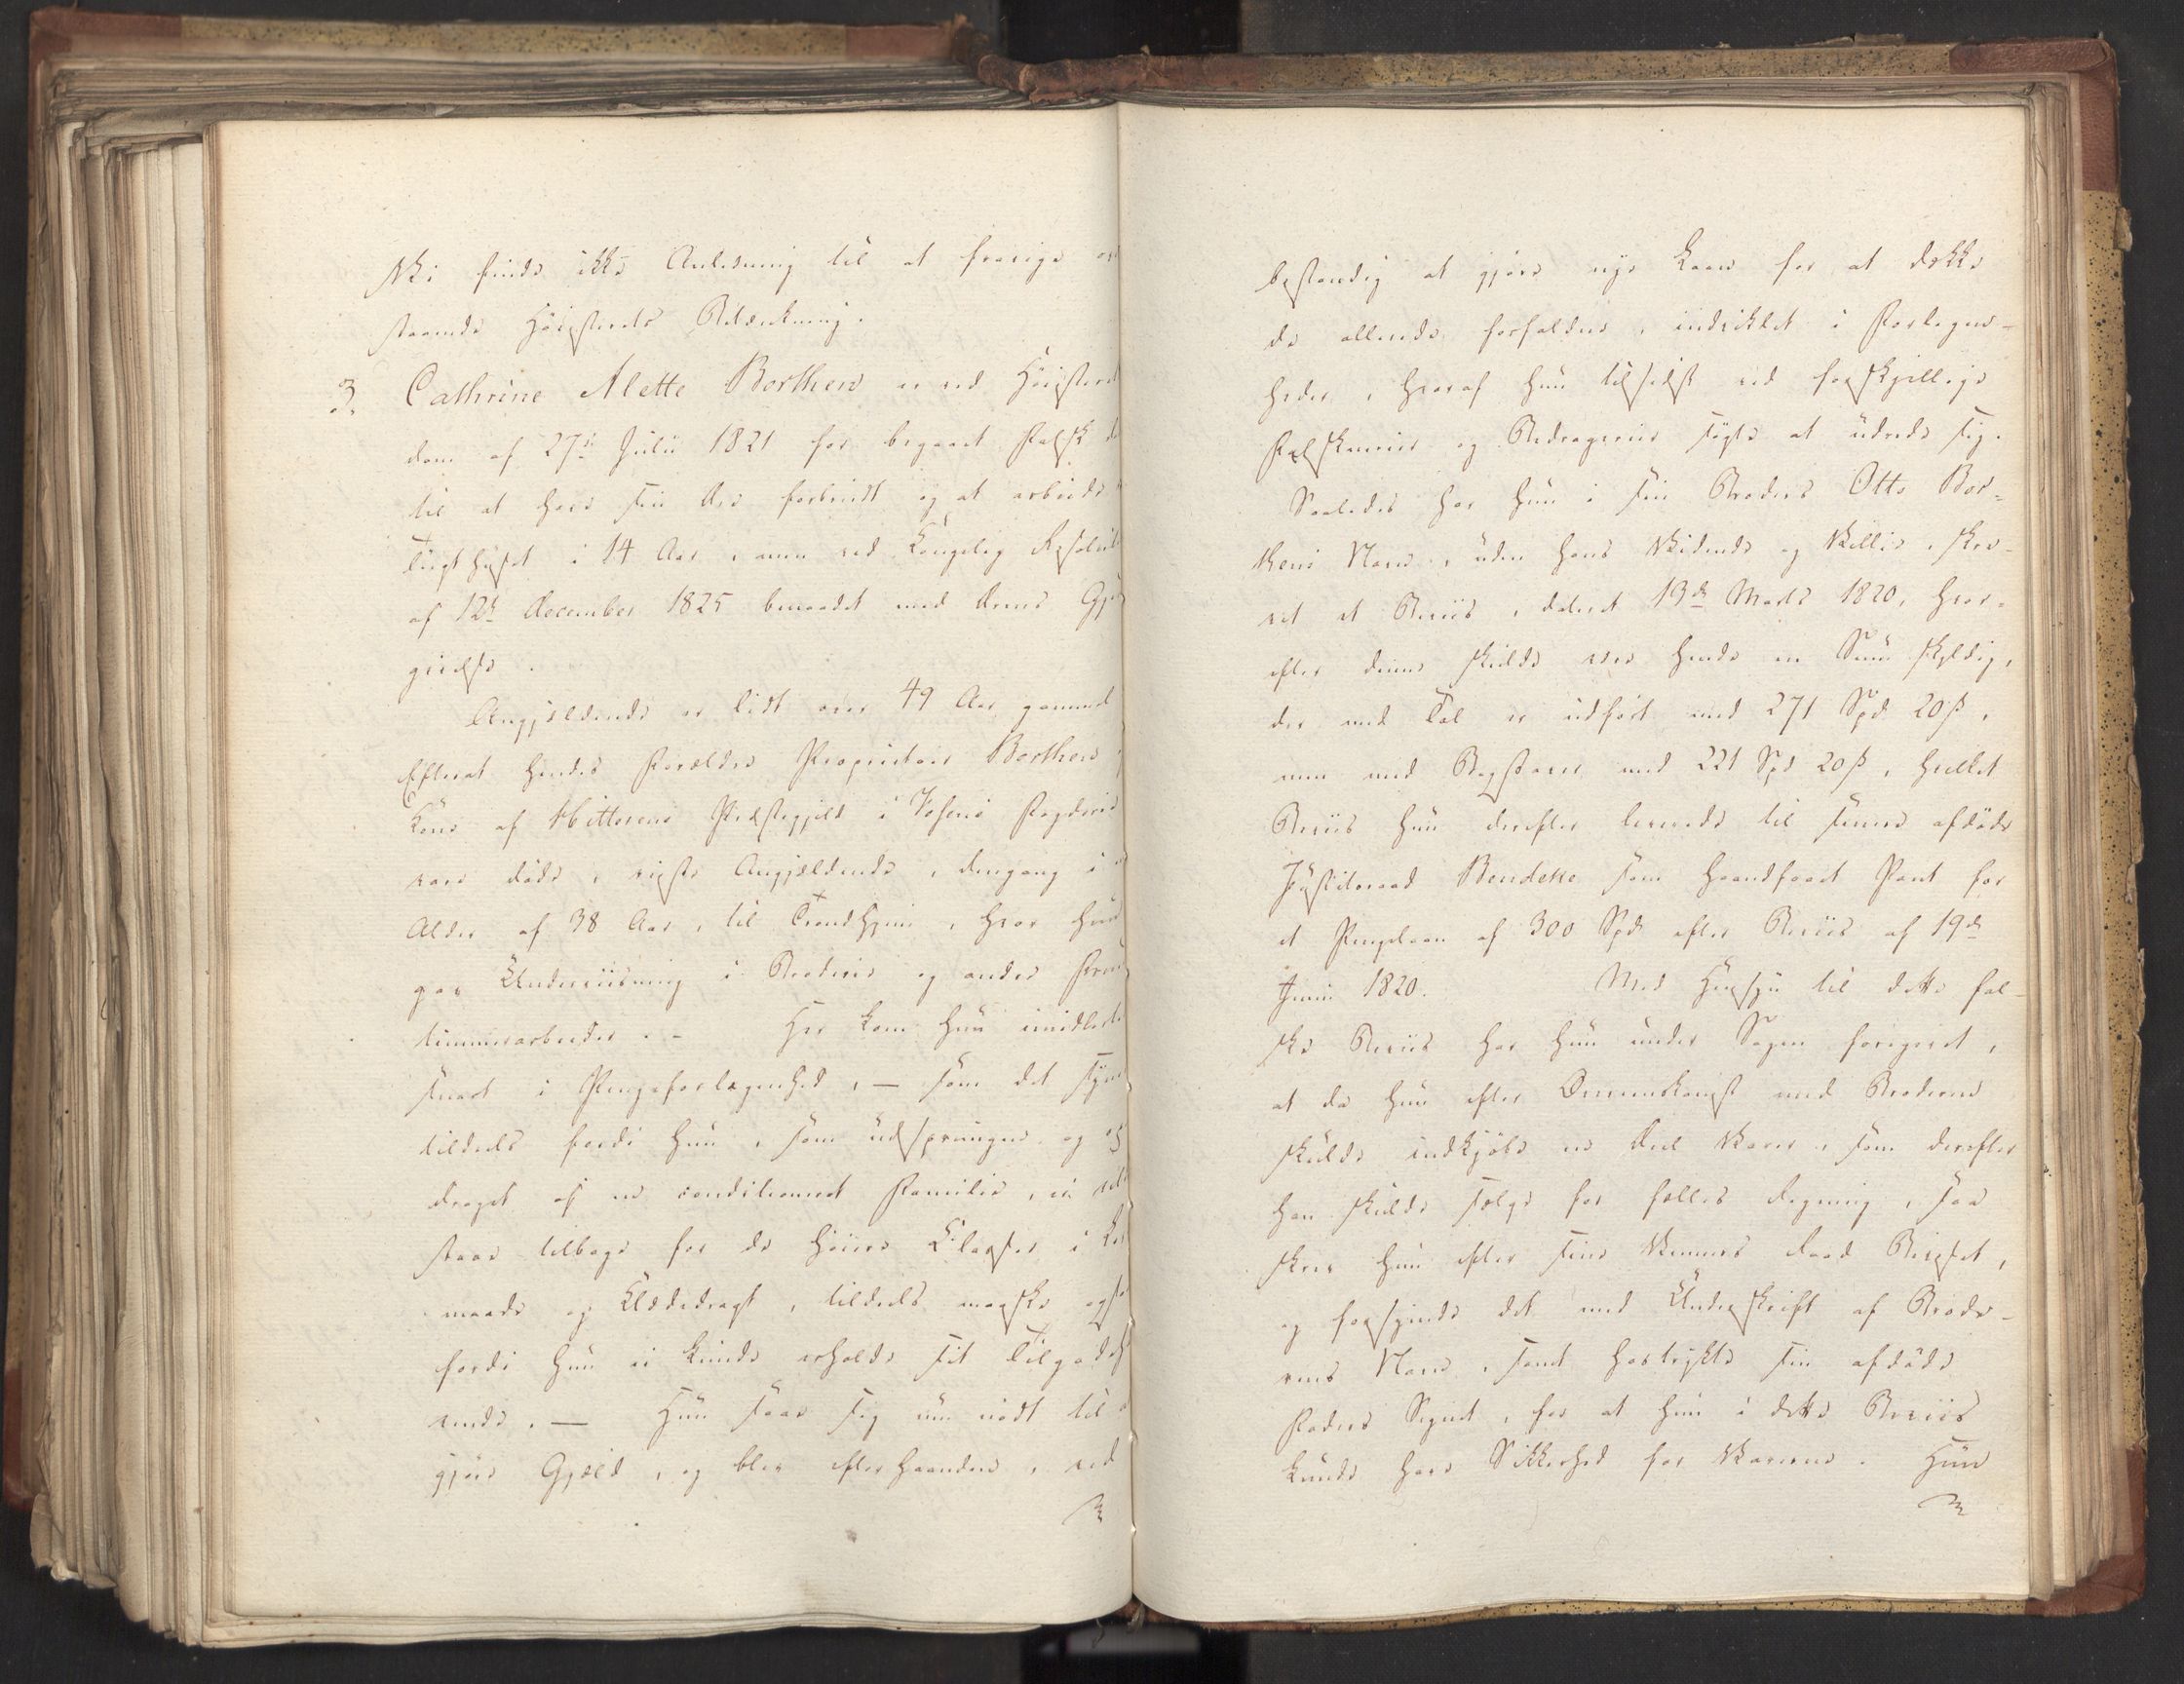 Vi finde ikke Anledning til at fravige oven
staaende Høiesterets Betænkning.
3. Cathrine Alette Borthen er ved Høiesterets
dom af 27de Julii 1821 for begaaet Falsk dømt
til at have sin Ære forbrudt og at arbeide i
Tugthuset i 14 Aar, men ved Kongelig Resolution
af 12te December 1825 benaadet med Ærens Gjen
givelse.
Angjeldende er lidt over 49 Aar gammel
Efterat hendes Forældre Proprietair Borthen og
Kone af Hitterens Præstegjeld i Fosens Fogderie
vare døde, reiste Angjeldende, dengang i en
Alder af 38 Aar, til Trondhjem, hvor hun
gav Underviisning i Broderie og andre Fruen
timmerarbeider. - Her kom hun imidlertid
snart i Pengeforlegenhed, — som det synes
tildeels fordi hun, som udsprungen og op
draget af en conditioneret Familie, ei vilde
staae tilbage for de høiere Classer i Leve
maade og Klædedragt, tildeels maaske ogsaa
fordi hun ei kunde erholde sit Tilgodeha
vende. — Hun saae sig nu nødt til at
gjøre Gjeld, og blev efterhaanden, ved
bestandig at gjøre nye Laan for at dække
de allerede forfaldne, indviklet i Forlegen-
heder, hvoraf hun tilsidst ved forskjellige
Falsknerier og Bedragerier søgte at udrede sig.
Saaledes har hun i sin Broders Otto Bor-
thens Navn, uden hans Vidende og Villie, skre-
vet et Beviis, dateret 13de Marts 1820, hvor-
efter denne skulde være hende en Sum skyldig,
der med Tal er udført med 271 Spd 20 ß,
men med Bogstaver med 221 Spd 20 ß, hvilket
Beviis hun derefter leverede til senere afdøde
Justitsraad Bendeke som haandfaaet Pant for
et Pengelaan af 300 Spd efter Beviis af 19de
Junii 1820. Med Hensyn til dette fal-
ske Beviis har hun under Sagen foregivet,
at da hun efter Overeenskomst med Broderen
skulde indkjøbe en Deel Varer, som derefter
han skulde sælge for fælles Regning, saa
skrev hun efter sine Venners Raad Beviset,
og forsynede det med Underskrift af Brode-
rens Navn, samt hostrykte sin afdøde
Faders Signet, for at hun i dette Beviis
kunde have Sikkerhed for Varerne. Hun